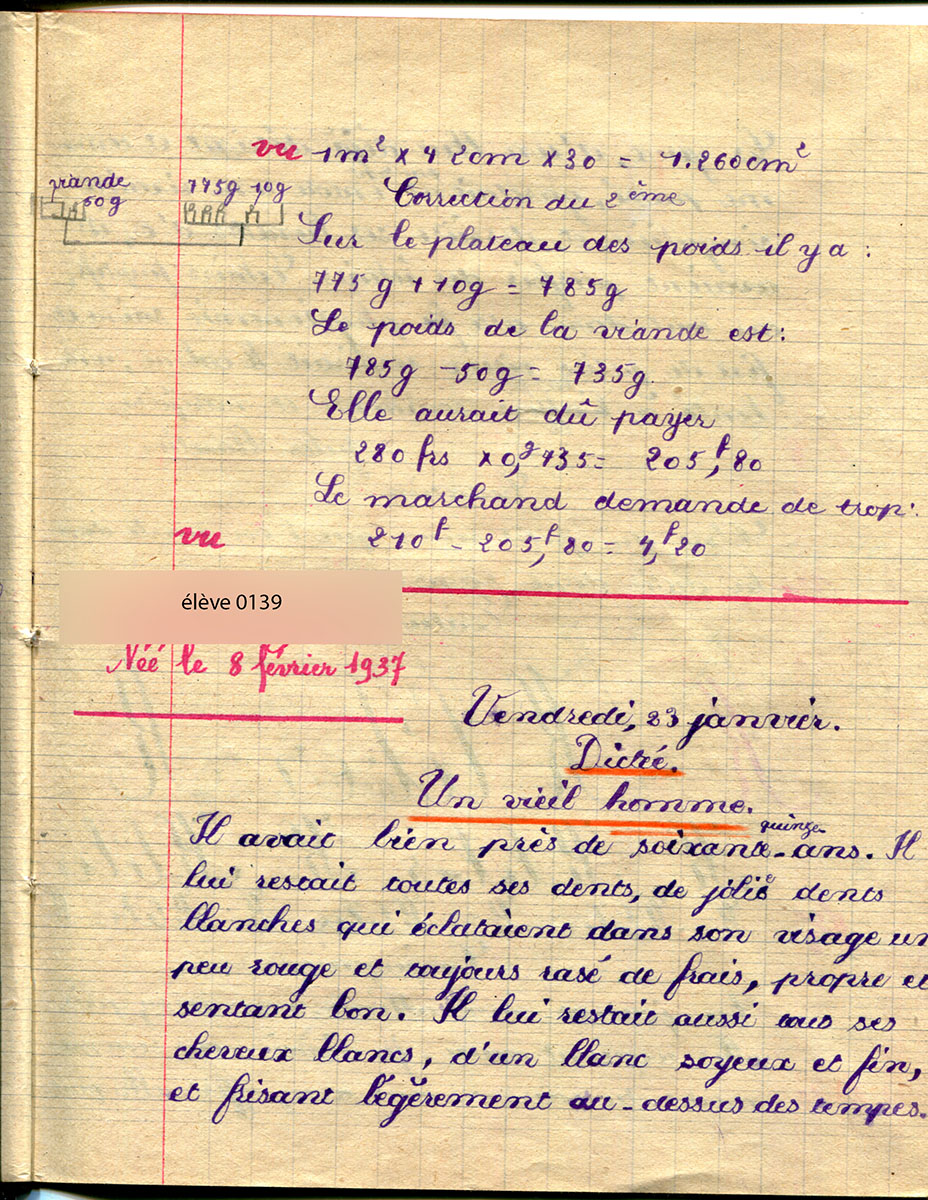 vu 1m² × 42cm × 30 = 1.260cm²
viande 775g 10g Correction du 2ème
50g
Sur le plateau des poids il y a :
775g + 10g = 785g
Le poids de la viande est :
785g - 50g = 735g.
Elle aurait dû payer
280 frs × 0,735 = 205f,80
Le marchand demande de trop :
vu 210f - 205f,80 = 4f,20
élève 0139
Néé le 8 février 1937
Vendredi, 23 janvier.
Dictée.
Un vieil homme.
quinze
Il avait bien près de soixante-ans. Il
lui restait toutes ses dents, de jolies dents
blanches qui éclataient dans son visage un
peu rouge et toujours rasé de frais, propre et
sentant bon. Il lui restait aussi tous ses
cheveux blancs, d'un blanc soyeux et fin,
et frisant légèrement au-dessus des tempes.